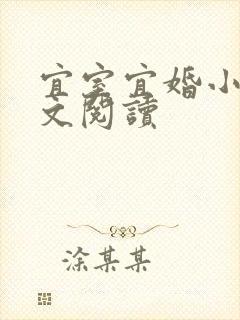 宜室宜婚小
文閱讀
涂某某